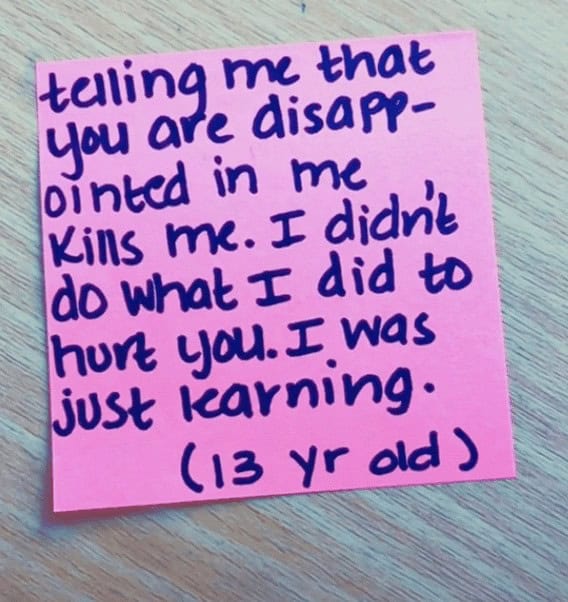 telling me that
you are disapp-
ointed in me
kills me. I didn't
do what I did to
hurt you. I was
just learning.
(13 yr old)